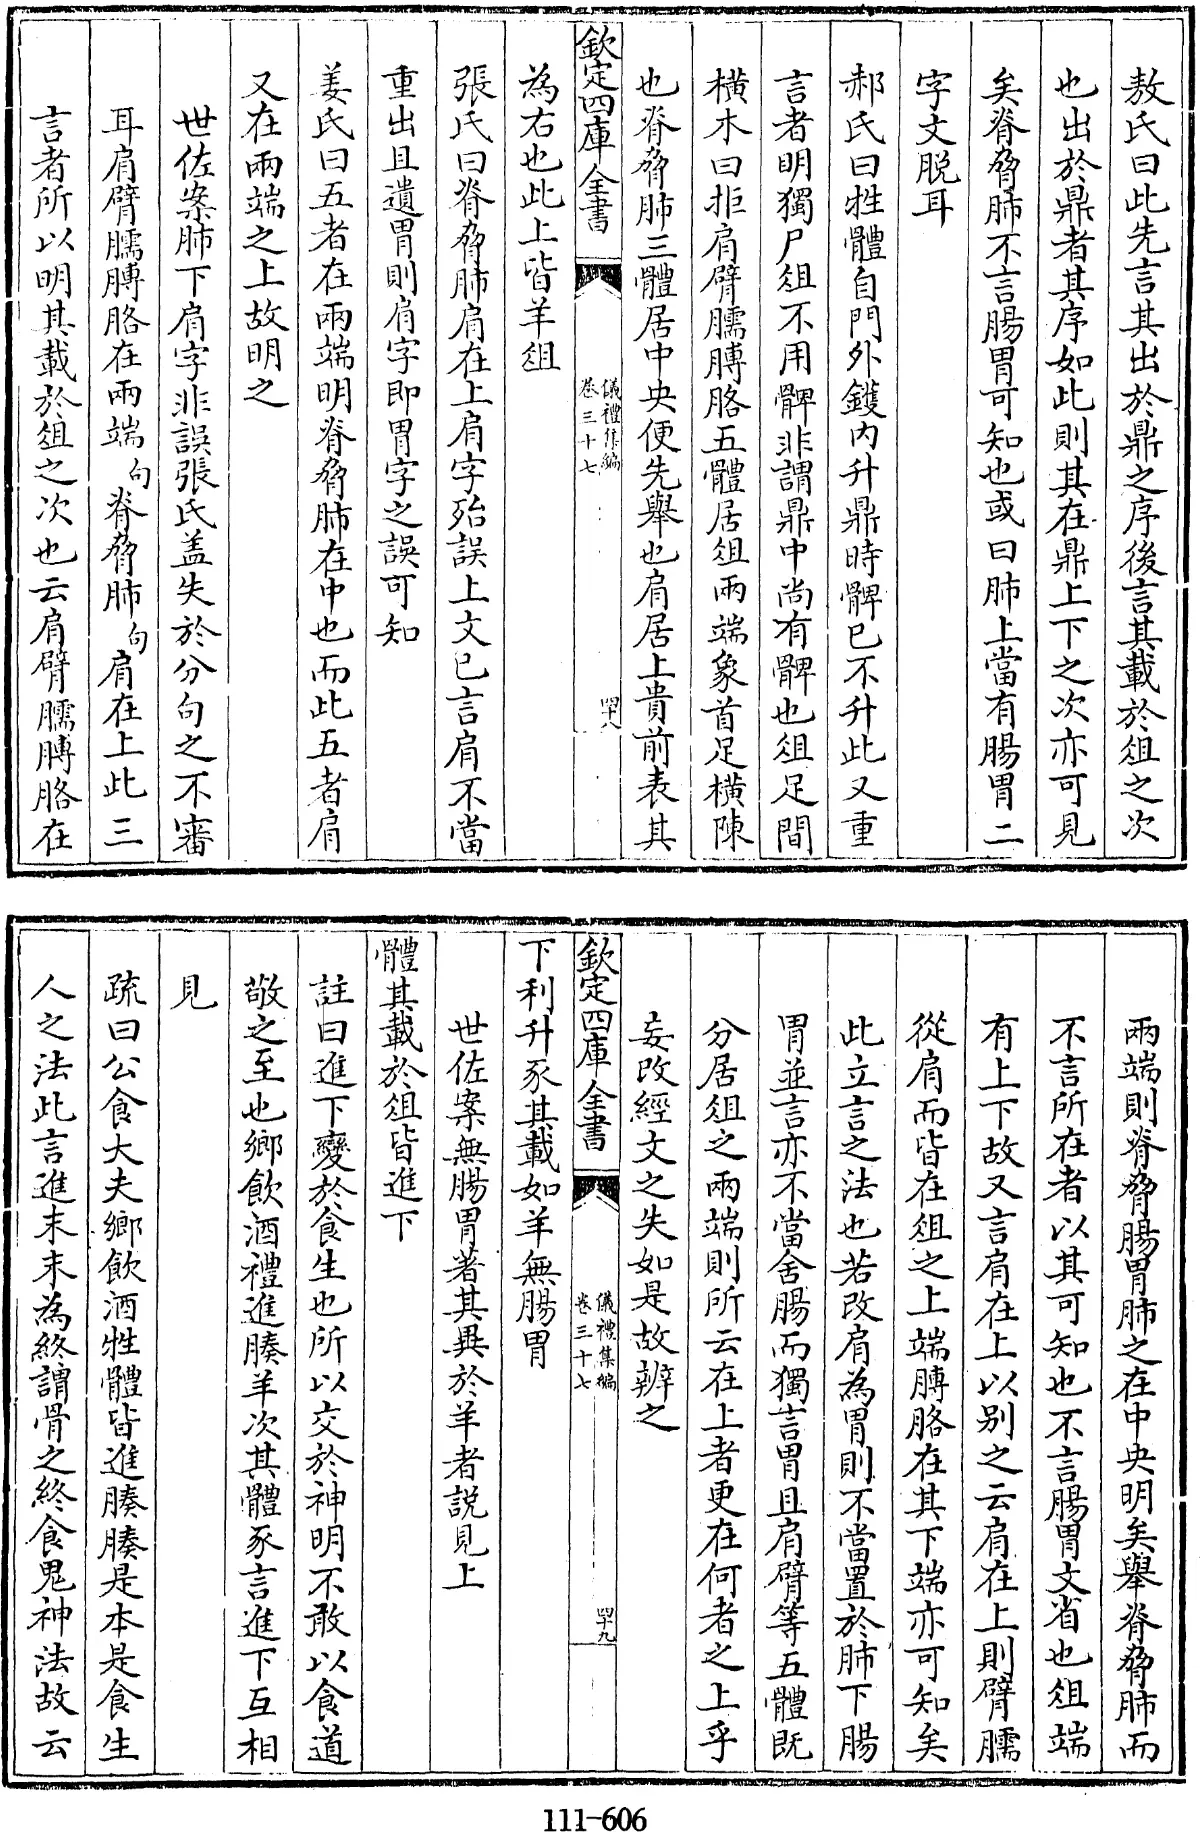 敖氏曰此先言其出於鼎之序後言其載於俎之次
也出於鼎者其序如此則其在鼎上下之次亦可見
矣脊脅肺不言腸胃可知也或曰肺上當有腸胃二
字文脱耳
郝氏曰牲體自門外鑊内升鼎時髀已不升此又重
言者明獨尸俎不用髀非謂鼎中尚有髀也俎足間
橫木曰拒肩臂臑膊胳五體居俎兩端象首足橫陳
也脊脅肺三體居中央便先舉也肩居上貴前表其
欽定四庫全書
儀禮集編
卷三十七
四十八
為右也此上皆羊俎
張氏曰脊脅肺肩在上肩字殆誤上文已言肩不當
重出且遺胃則肩字即胃字之誤可知
姜氏曰五者在兩端明脊脅肺在中也而此五者肩
又在兩端之上故明之
世佐案肺下肩字非誤張氏盖失於分句之不審
耳肩臂臑膊胳在兩端句脊脅肺句肩在上此三
言者所以明其載於俎之次也云肩臂臑膊胳在
兩端則脊脅腸胃肺之在中央明矣舉脊脅肺而
不言所在者以其可知也不言腸胃文省也俎端
有上下故又言肩在上以别之云肩在上則臂臑
從肩而皆在俎之上端膊胳在其下端亦可知矣
此立言之法也若改肩為胃則不當置於肺下腸
胃並言亦不當舍腸而獨言胃且肩臂等五體既
分居俎之兩端則所云在上者更在何者之上乎
妄改經文之失如是故辨之
欽定四庫全書
儀禮集編
卷三十七
四十九
下利升豕其載如羊無腸胃
世佐案無腸胃著其異於羊者説見上
體其載於俎皆進下
註曰進下變於食生也所以交於神明不敢以食道
敬之至也鄉飲酒禮進腠羊次其體豕言進下互相
見
疏曰公食大夫鄉飲酒牲體皆進腠腠是本是食生
人之法此言進末末為終謂骨之終食鬼神法故云
111-606